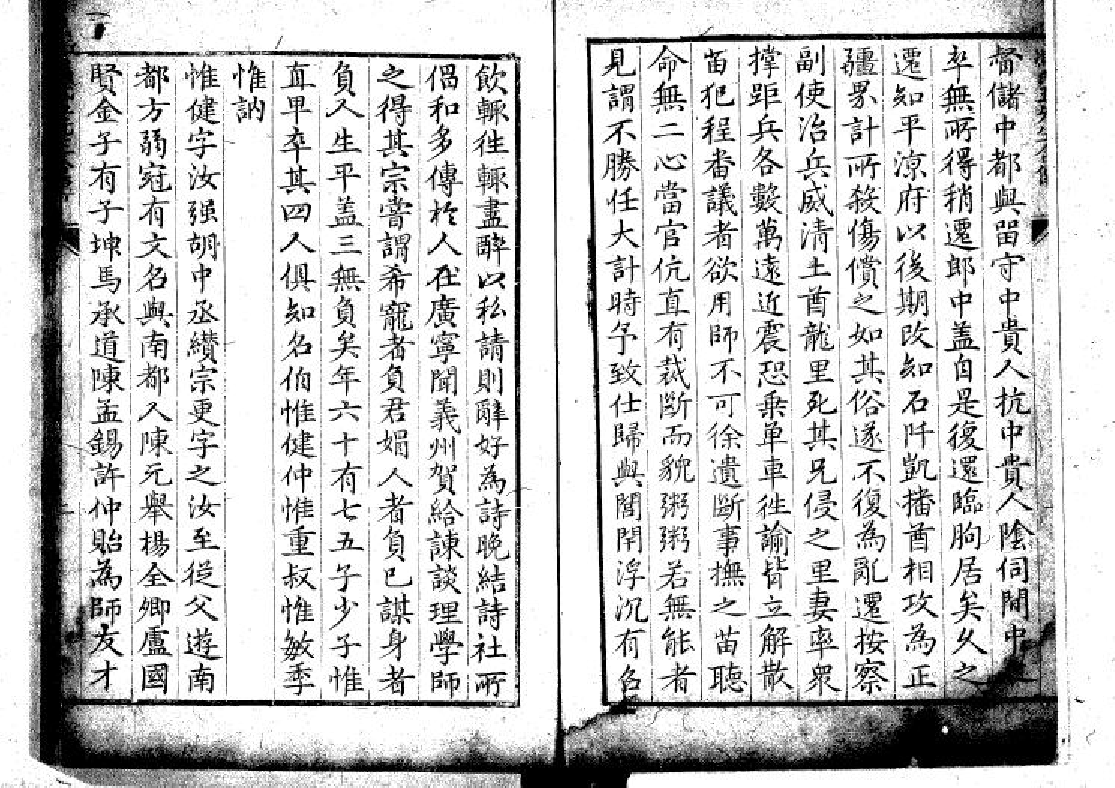 督儲中都與留守中貴人抗中貴人陰伺間中之
卒無所得稍遷郎中盖自是復還臨朐居矣久之
遷知平凉府以後期改知石阡凱播酋相攻為正
疆界計所殺傷償之如其俗遂不復為亂遷按察
副使治兵威清土酋龍里死其兄侵之里妻率衆
撑距兵各數萬遠近震恐乗单車徃諭皆立解散
苗犯程番議者欲用師不可徐遺斷事撫之苗聽
命無二心當官伉直有裁斷而貌粥粥若無能者
見謂不勝任大計時予致仕歸與閭閈浮沉有名
飲輒徃輒盡醉以私請則辭好為詩晚結詩社所
倡和多傳於人在廣寧聞義州賀給諫談理學師
之得其宗嘗謂希寵者負君媚人者負已謀身者
負人生平盖三無負矣年六十有七五子少子惟
直早卒其四人俱知名伯惟健仲惟重叔惟敏季
惟訥
惟健字汝强胡中丞纘宗更字之汝至從父遊南
都方弱冠有文名與南都人陳元舉楊全卿盧國
賢金子有子坤馬承道陳孟錫許仲貽為師友才